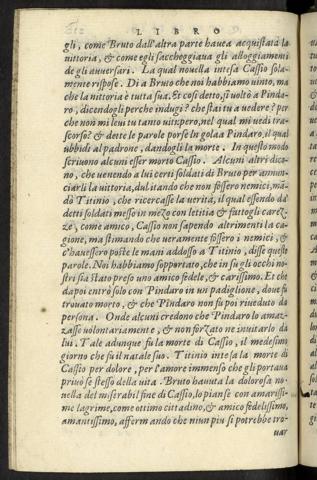 LIBRO
gli, come Bruto dall'altra parte havea acquistata la
vittoria, & come egli saccheggiava gli alloggiamenti
de gli avversari. La qual novella intesa Cassio sola-
mente rispose. Di a Bruto che noi habbiamo vinto, ma
che la vittoria è tutta sua. Et cosi detto, si voltò a Pinda-
ro, dicendogli perche indugi? che stai tu a vedere? per
che non mi levi tu tanto vitupero, nel qual mi vedi tra-
scorso? & dette le parole porse la gola a Pindaro, il qual
ubbidì al padrone, dandogli la morte. In questo modo
scrivono alcuni esser morto Cassio. Alcuni altri dico-
no, che venendo a lui certi soldati di Bruto per annun-
ciarli la vittoria, dubitando che non fossero nemici, mã-
dò Titinio, che ricercasse la verità, il qual essendo da
detti soldati messo in mezo con letitia & fattogli carez-
ze, come amico, Cassio non sapendo altrimenti la ca-
gione, ma stimando che veramente fossero i nemici, &
c'havessero poste le mani addosso a Titinio, disse queste
parole. Noi habbiamo sopportato, che in su gli occhi no-
stri sia stato preso uno amico fedele, & carissimo. Et che
da poi entrò solo con Pindaro in un padiglione, dove fu
trovato morto, & che Pindaro non fu poi riveduto da
persona. Onde alcuni credono che Pindaro lo amaz-
zasse volontariamente, & non forzato ne invitato da
lui. Tale adunque fu la morte di Cassio, il medesimo
giorno che fu il natale suo. Titinio intesa la morte di
Cassio per dolore, per l'amore immenso che gli portava
privò se stesso della vita. Bruto havuta la dolorosa no-
vella del miserabil fine di Cassio, lo pianse con amarissi-
me lagrime, come ottimo cittadino, & amico fedelissimo,
amantissimo, affermando che niun piu si potrebbe tro-
var